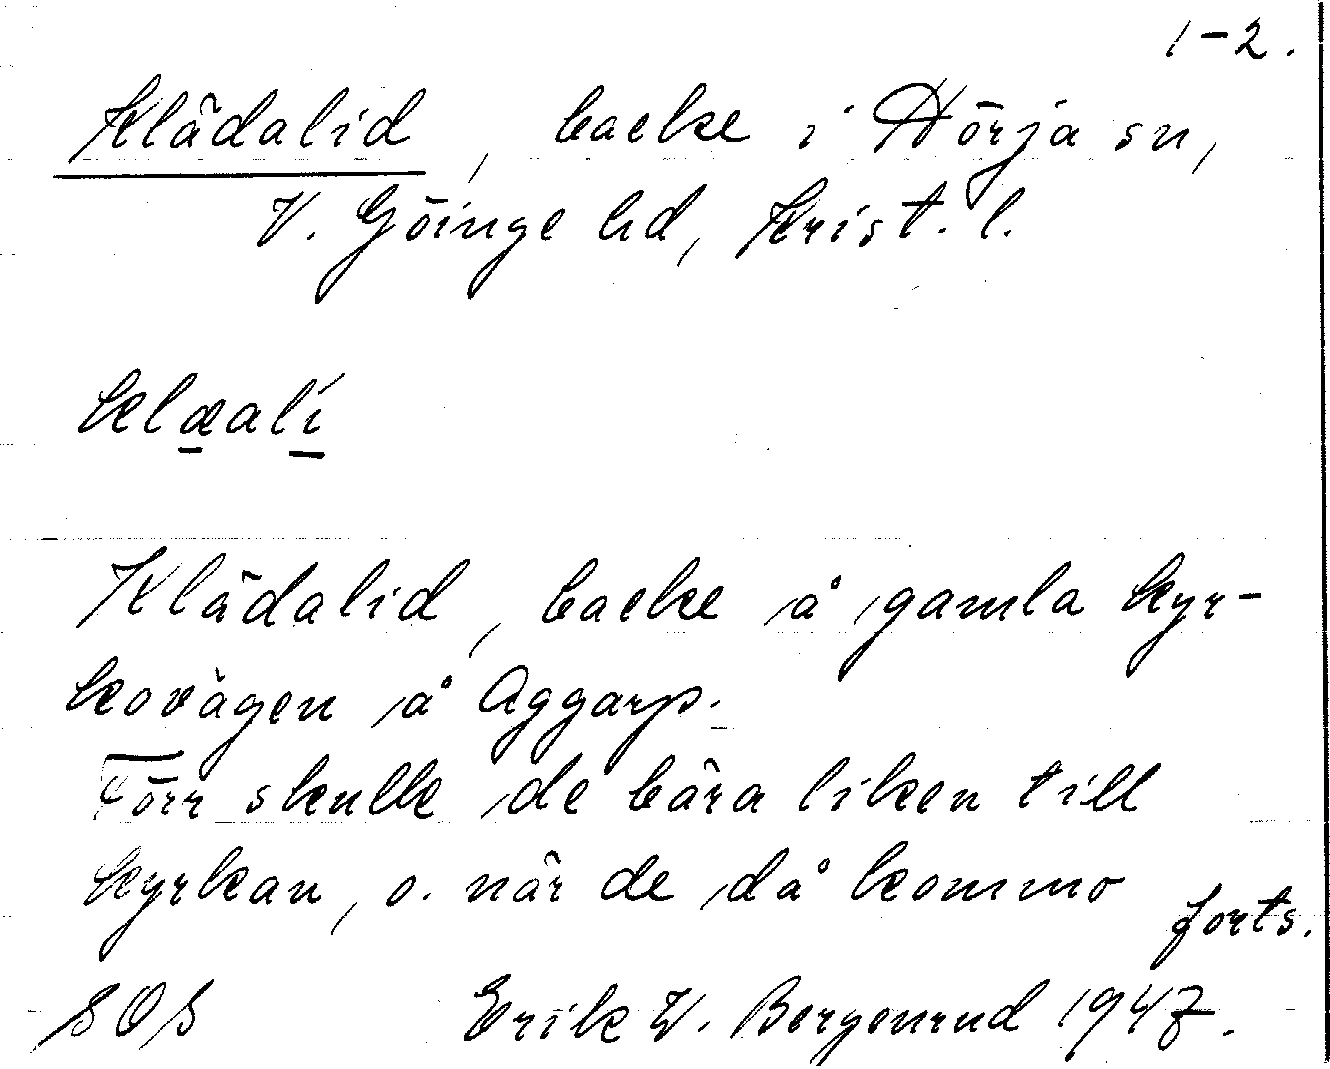 1-2.
Klädalid, backe i Hörja sn,
V. Göinge hd, Krist. l.
klæalí
Klädalid, backe å gamla kyr-
kovägen å Aggarp.
Förr skulle de bära liken till
kyrkan, o. när de då kommo
forts.
SOS Erik W. Bergenrud 1947.